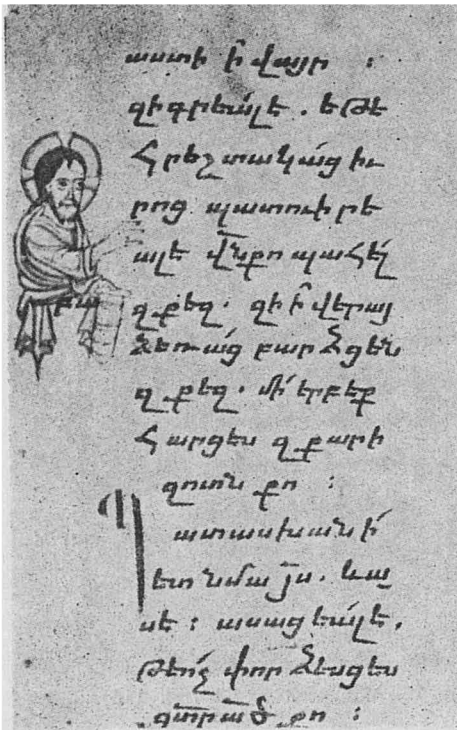 աստի ի՛ վայր :
զի գրեալ է . եթէ
հրեշտակա՛ց իւ
րոց պատուիրե
ալ է վն քո պահել
զքեզ . զի ի՛ վերայ
ձեռա՛ց բարձցեն
զքեզ . մի՛ երբեք
հարցես զքարի
զոտն քո :
Պատասխանի՛
ետ նմա յս . և ա
սե : ասացեալ է .
թե ո՛չ փորձեսցես
զտր ած քո :